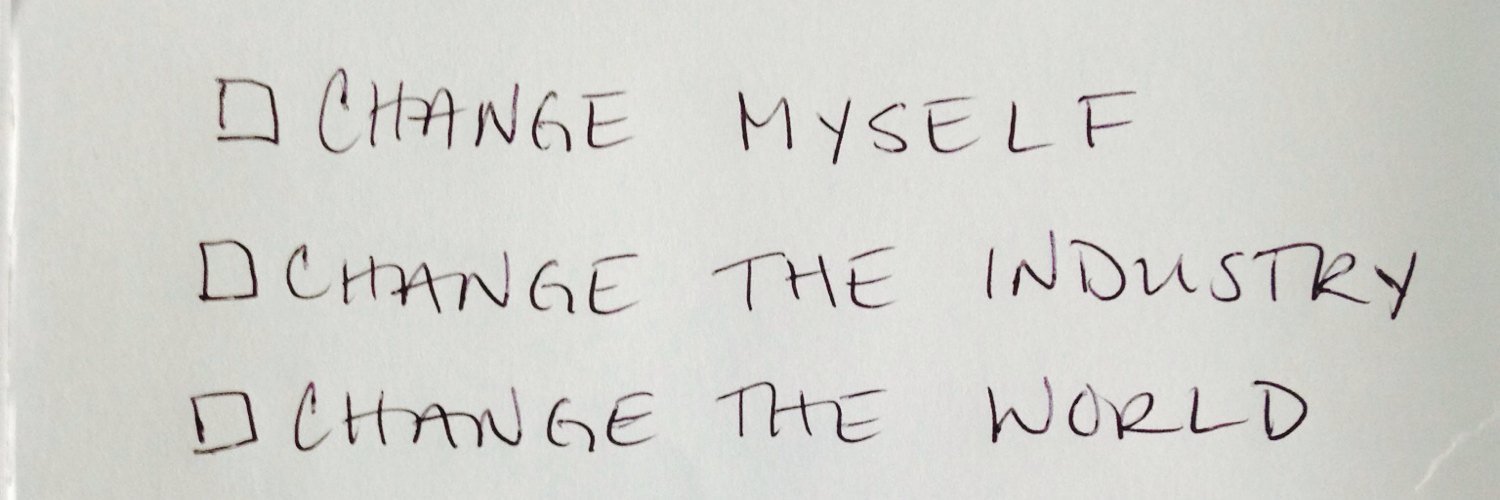 ☐ CHANGE MYSELF
☐ CHANGE THE INDUSTRY
☐ CHANGE THE WORLD